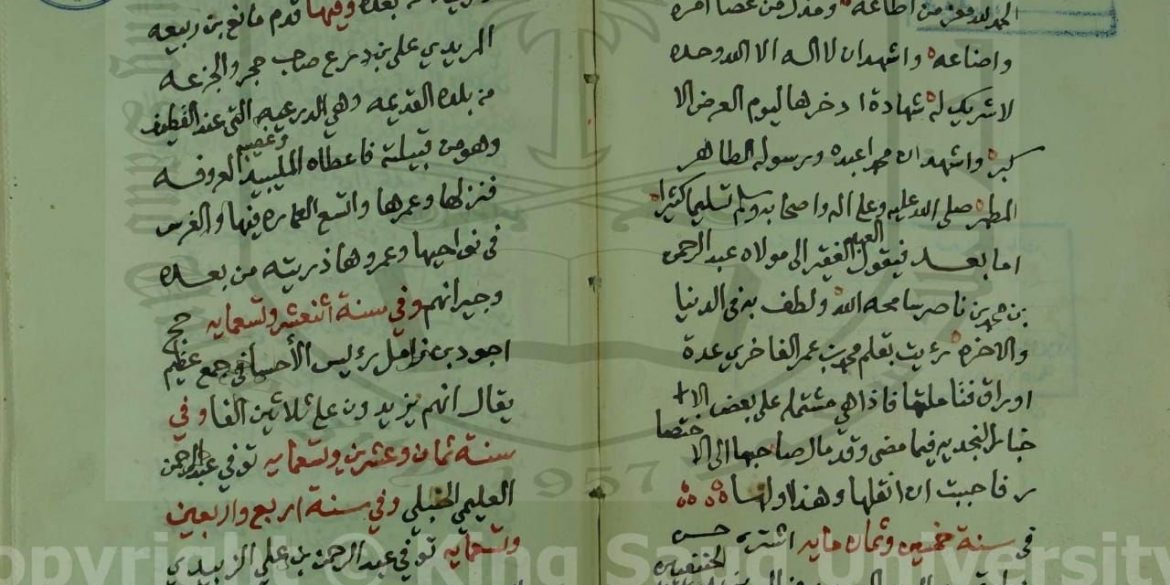 الحمد لله معز من اطاعه ومذل من عصا امره
واضاعه واشهد ان لا اله الا الله وحده
لا شريك له شهادة ادخرها ليوم العرض الا
كبر واشهد ان محمدا عبده ورسوله الطاهر
المطهر صلى الله عليه وعلى اله واصحابه وسلم تسليما كثيرا
اما بعد فيقول العبد الفقير الى مولاه عبد الرحمن
بن محمد بن ناصر سامحه الله ولطف به في الدنيا
والاخره رئيت بقلم محمد بن عمر الفاخري عدة
اوراق فتاملتها فاذا هي مشتمله على بعض الا
خبار النجديه فيما مضى وقد مال صاحبها الى الا
ختصا
ر فاحببت ان انقلها وهذا اولها
في سنة خمسين وثمان مايه اشترى حسن
بعده وفيها قدم مانع بن ربيعه
المريدي على بن درع صاحب حجر والجزعه
من بلده القديمه وهي الدرعيه التي عند القطيف
وهو من قبيلته فاعطاه المليبيد وغصيبه المعروفه
فنزلها وعمرها واتسع العماره فيها والغرس
في نواحيها وعمروها ذريته من بعده
وجيرانهم وفي سنة اثنعشر وتسعمايه حج
اجود بن زامل رئيس الأحسا في جمع عظيم
يقال انهم يزيدون على ثلاثين الفا وفي
سنة ثمان وعشرين وتسعمايه توفي عبد الرحمن
العليمي الحنبلي وفي سنة اربع واربعين
وتسعمايه توفي عبد الرحمن بن علي الزبيدي
1957
Copyright © King Saud University